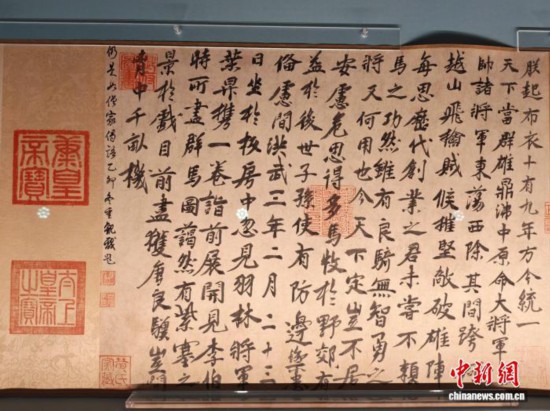 朕起布衣十有九年方今統一
天下當群雄鼎沸中原命大將軍
帥諸將軍東蕩西除其間跨
越山飛檄賊候摧堅敵破雄陣
每思歷代創業之君未嘗不賴
馬之功然雖有良騎無智勇之
將又何用也今天下定豈不居
安慮危思得多馬牧於野郊有
益於後世子孫使有防邊禦
備慮間洪武三年二月二十三
日坐於板房中忽見羽林將軍
葉昇攜一卷詣前展開見李伯
時所畫群馬圖藹然有紫塞之
景於戲目前盡獲唐良驥豈
胸中千畝機
太上皇帝之寶
中新網